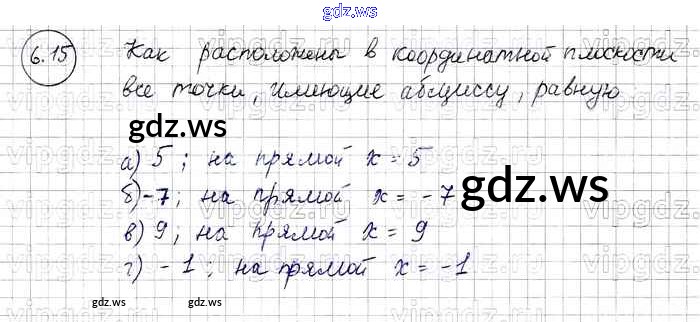 gdz.ws
6.15 Как расположены в координатной плоскости
все точки, имеющие абсциссу, равную
gdz.ws
а) 5 ; на прямой x = 5
б) -7; на прямой x = -7
gdz.ws
в) 9 ; на прямой x = 9
г) -1 ; на прямой x = -1
gdz.ws gdz.ws